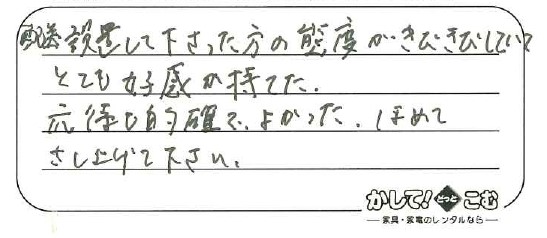 配送設置して下さった方の態度がきびきびしていて
とても好感が持てた.
応待も的確で、よかった. ほめて
さし上げて下さい.
かして!どっとこむ
家具・家電のレンタルなら